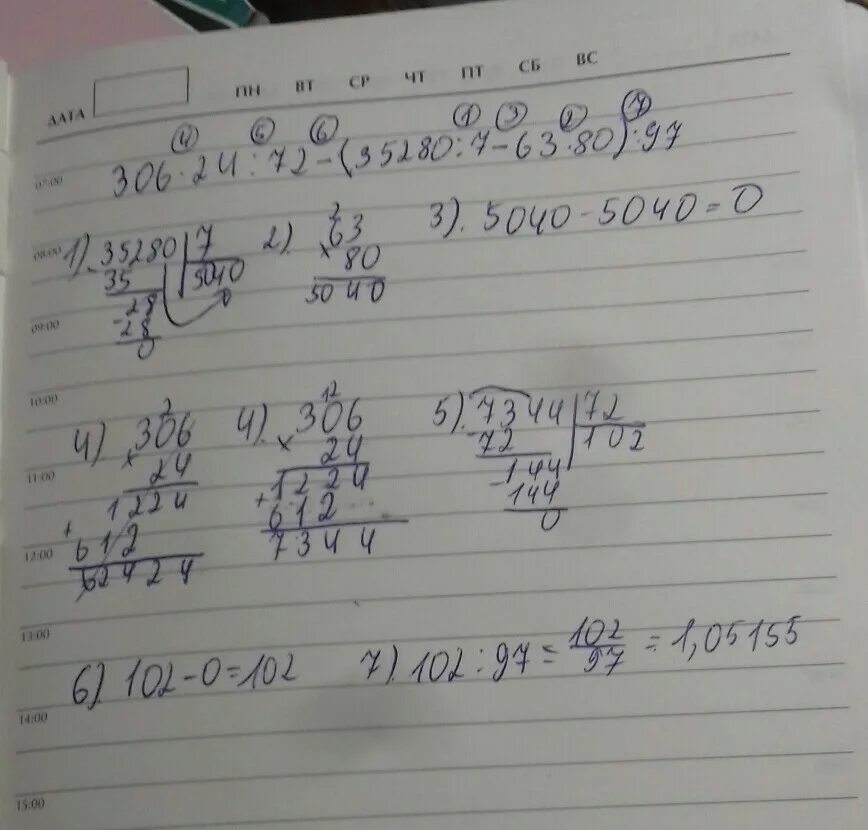 ДАТА ПН ВТ СР ЧТ ПТ СБ ВС
4 5 6 1 3 2 7
306·24:72-(35280:7-63·80):97
07:00
3). 5040-5040=0
08:00
1) 35280 7
35 5040
-28
28
0
2) 2
63
× 80
5040
09:00
10:00
4) 2
306
× 24
1224
+ 612
62424
4). 12
306
× 24
1224
+ 612
7344
5). 7344 72
-72 102
-144
144
0
11:00
12:00
13:00
6) 102-0=102 7). 102:97=102/97=1,05155
14:00
15:00